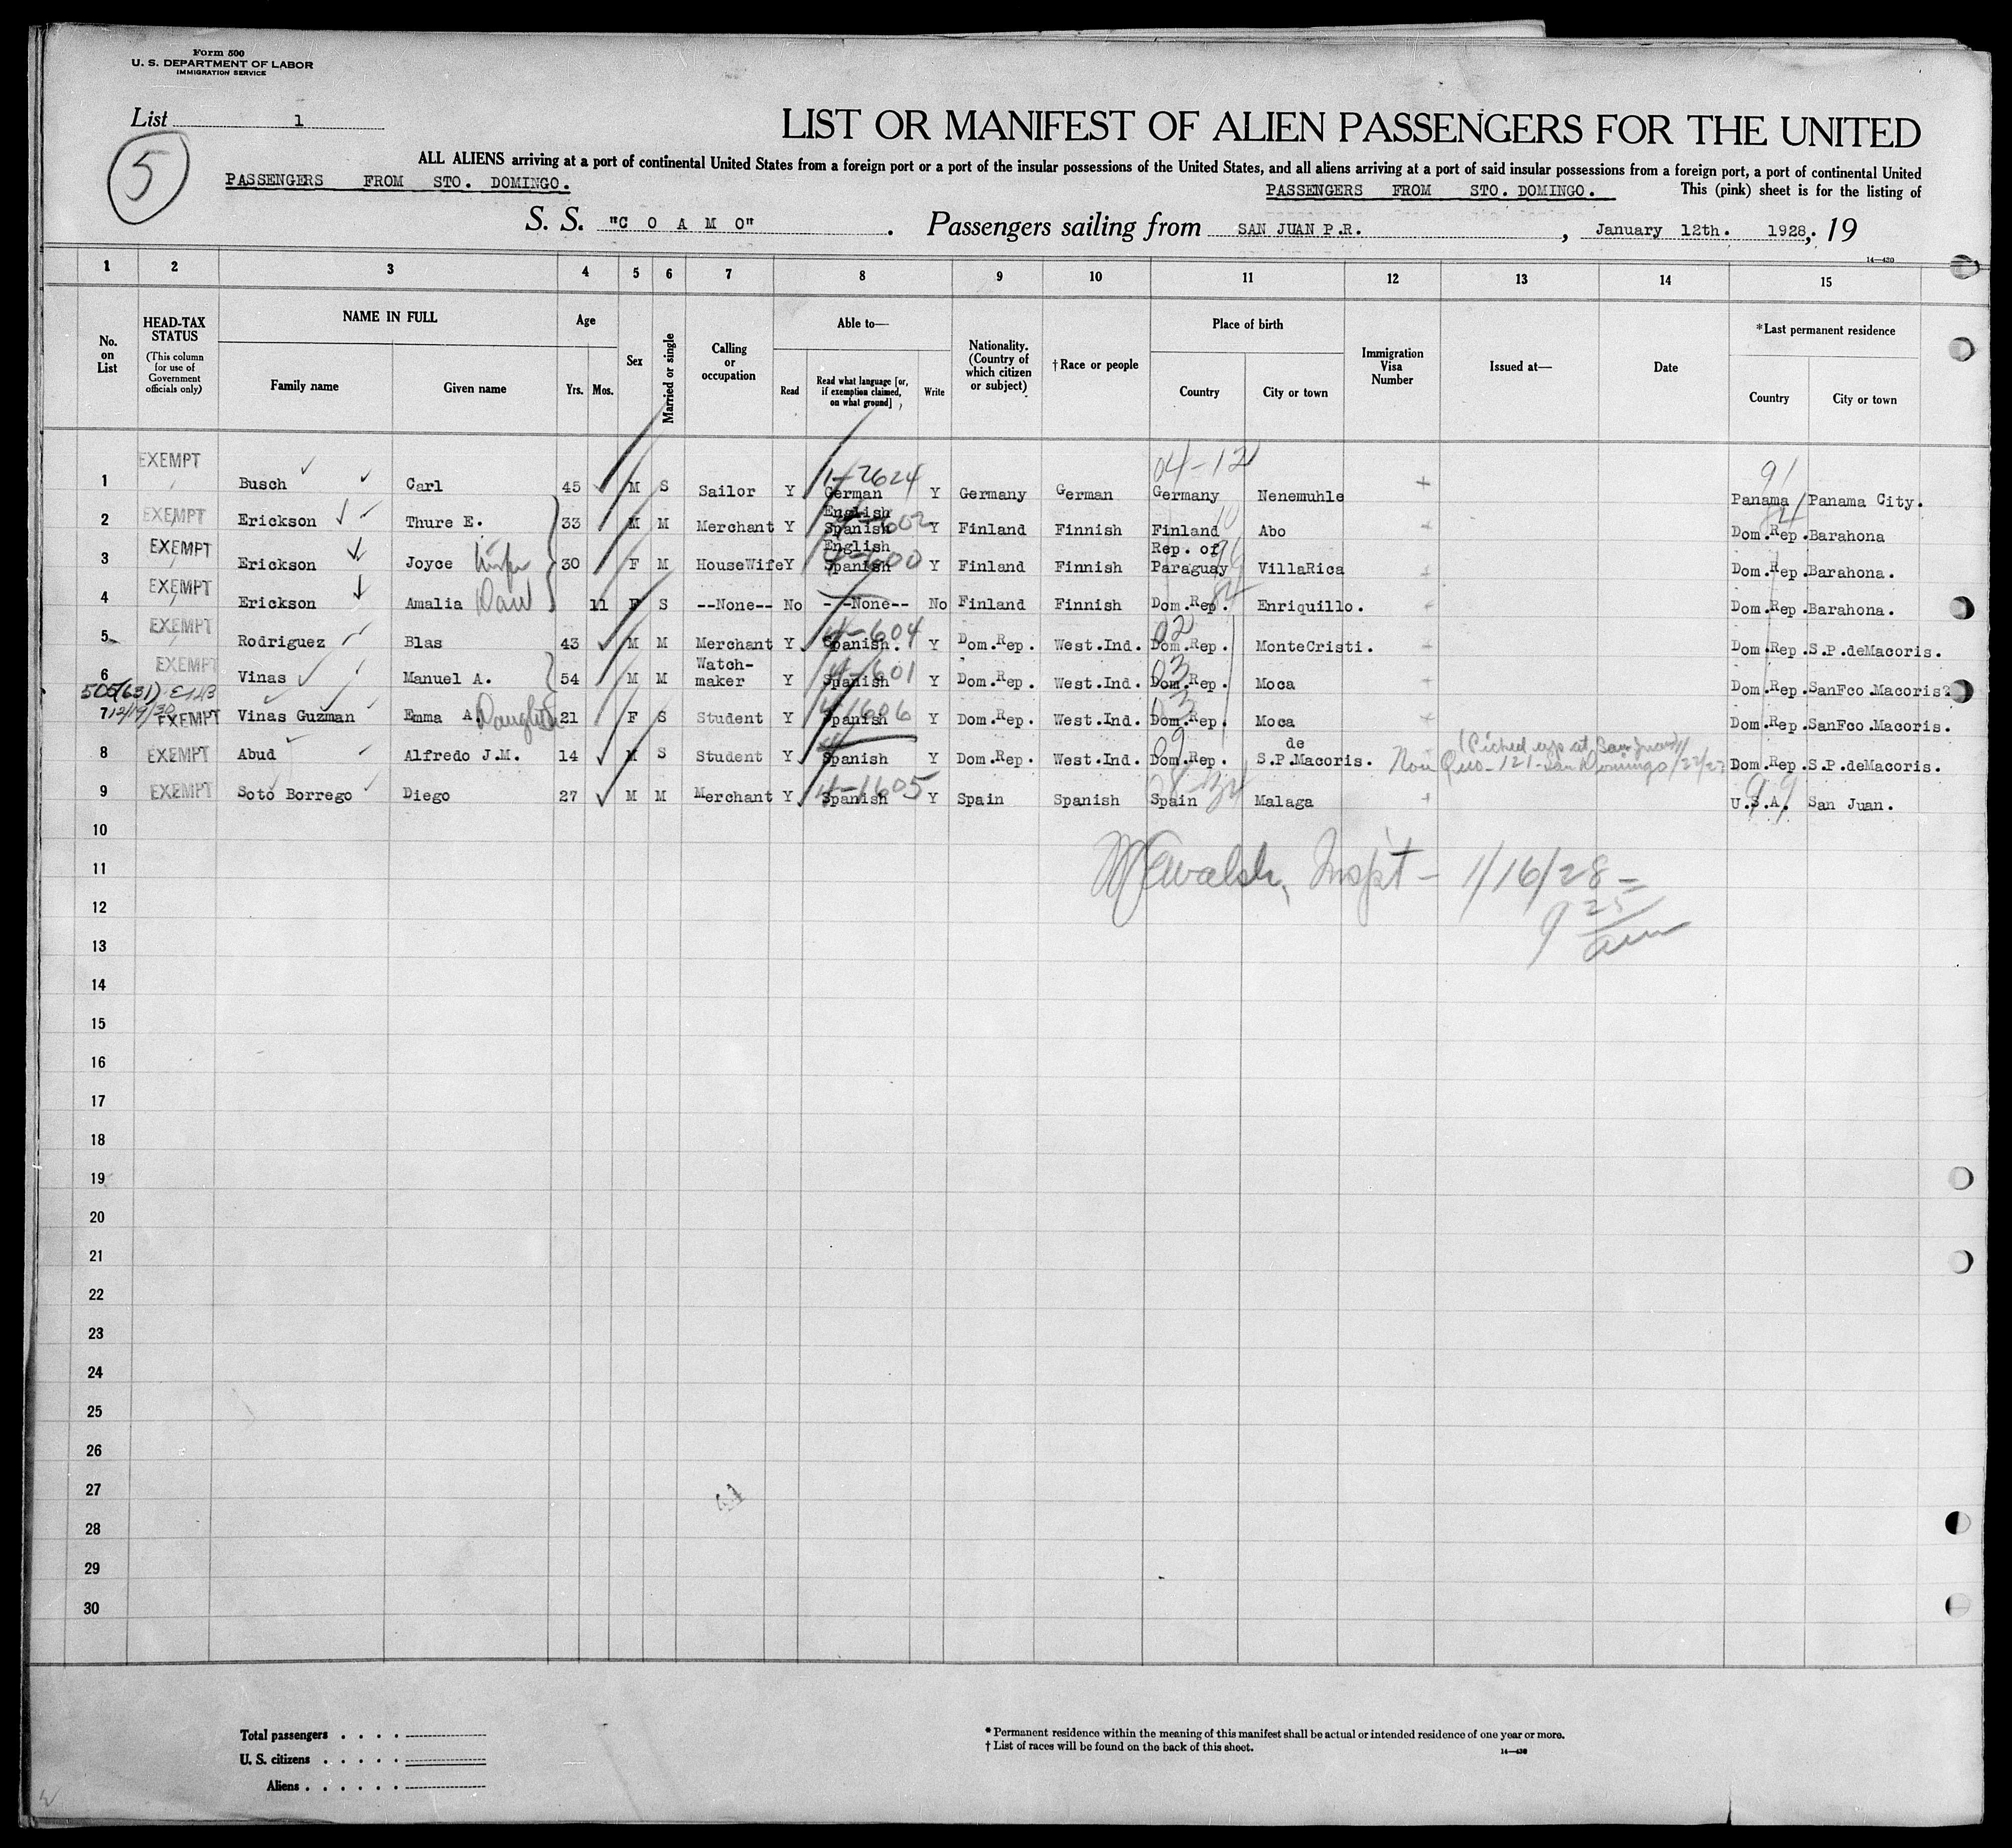 Form 500
U. S. DEPARTMENT OF LABOR
IMMIGRATION SERVICE
List 1
5
LIST OR MANIFEST OF ALIEN PASSENGERS FOR THE UNITED
ALL ALIENS arriving at a port of continental United States from a foreign port or a port of the insular possessions of the United States, and all aliens arriving at a port of said insular possessions from a foreign port, a port of continental United
PASSENGERS FROM STO. DOMINGO. PASSENGERS FROM STO. DOMINGO. This (pink) sheet is for the listing of
S. S. "C O A M O". Passengers sailing from SAN JUAN P.R., January 12th. 1928, 19
14—430
1 2 3 4 5 6 7 8 9 10 11 12 13 14 15
No. on List
HEAD-TAX STATUS
(This column for use of Government officials only)
NAME IN FULL
Family name Given name
Age
Yrs. Mos.
Sex
Married or single
Calling or occupation
Able to—
Read
Read what language [or, if exemption claimed, on what ground]
Write
Nationality. (Country of which citizen or subject)
† Race or people
Place of birth
Country City or town
Immigration Visa Number
Issued at—
Date
* Last permanent residence
Country City or town
04-12 91
1 EXEMPT Busch Carl 45 M S Sailor Y 1-2624 German Y Germany German Germany Nenemuhle + Panama Panama City.
2 EXEMPT Erickson Thure E. 33 M M Merchant Y English Spanish Y Finland Finnish Finland Abo + Dom.Rep. Barahona
3 EXEMPT Erickson Joyce Wife 30 F M HouseWife Y English Spanish Y Finland Finnish Rep. of Paraguay VillaRica + Dom.Rep. Barahona.
4 EXEMPT Erickson Amalia Dau 11 F S --None-- No --None-- No Finland Finnish Dom.Rep. Enriquillo. + Dom.Rep. Barahona.
5 EXEMPT Rodriguez Blas 43 M M Merchant Y 4-604 Spanish. Y Dom.Rep. West.Ind. 02 Dom.Rep. MonteCristi. + Dom.Rep. S.P.deMacoris.
6 EXEMPT Vinas Manuel A. 54 M M Watch-maker Y 4-601 Spanish Y Dom.Rep. West.Ind. 03 Dom.Rep. Moca + Dom.Rep. SanFco.Macoris
505(631)
7 12/19/30 EXEMPT Vinas Guzman Emma A. Daughter 21 F S Student Y 4-1606 Spanish Y Dom.Rep. West.Ind. 03 Dom.Rep. Moca + Dom.Rep. SanFco.Macoris.
8 EXEMPT Abud Alfredo J.M. 14 M S Student Y Spanish Y Dom.Rep. West.Ind. Dom.Rep. S.P. de Macoris. (Picked up at San Juan) Non Quo-121-San Domingo Dom.Rep. S.P.deMacoris.
9 EXEMPT Soto Borrego Diego 27 M M Merchant Y 4-1605 Spanish Y Spain Spanish Spain Malaga + 99 U.S.A. San Juan.
10
11 Walsh, Inspt - 1/16/28 =
12 9 25
13 am
14
15
16
17
18
19
20
21
22
23
24
25
26
27
28
29
30
Total passengers . . . .
U. S. citizens . . . . .
Aliens . . . . . .
* Permanent residence within the meaning of this manifest shall be actual or intended residence of one year or more.
† List of races will be found on the back of this sheet.
14—430